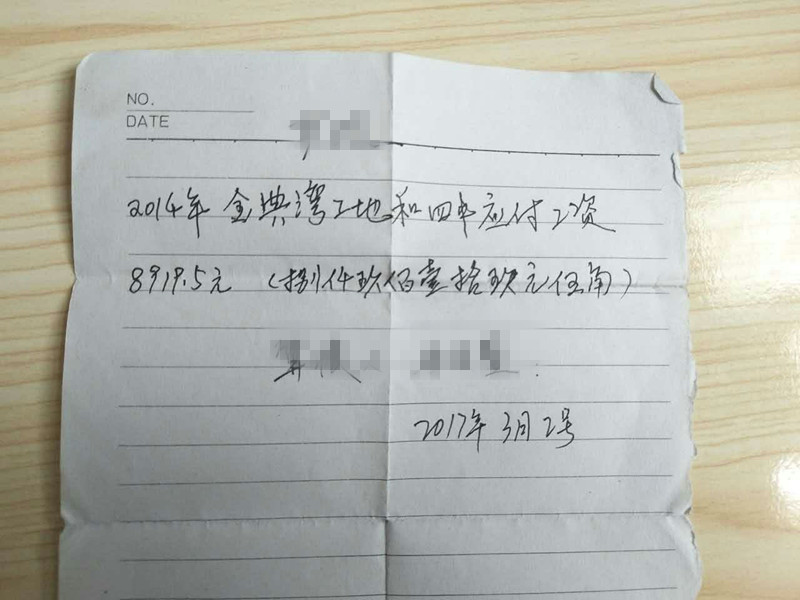 NO.
DATE
2014年 金典湾工地和四中应付工资
8919.5元 (捌仟玖佰壹拾玖元伍角)
2017年3月2号